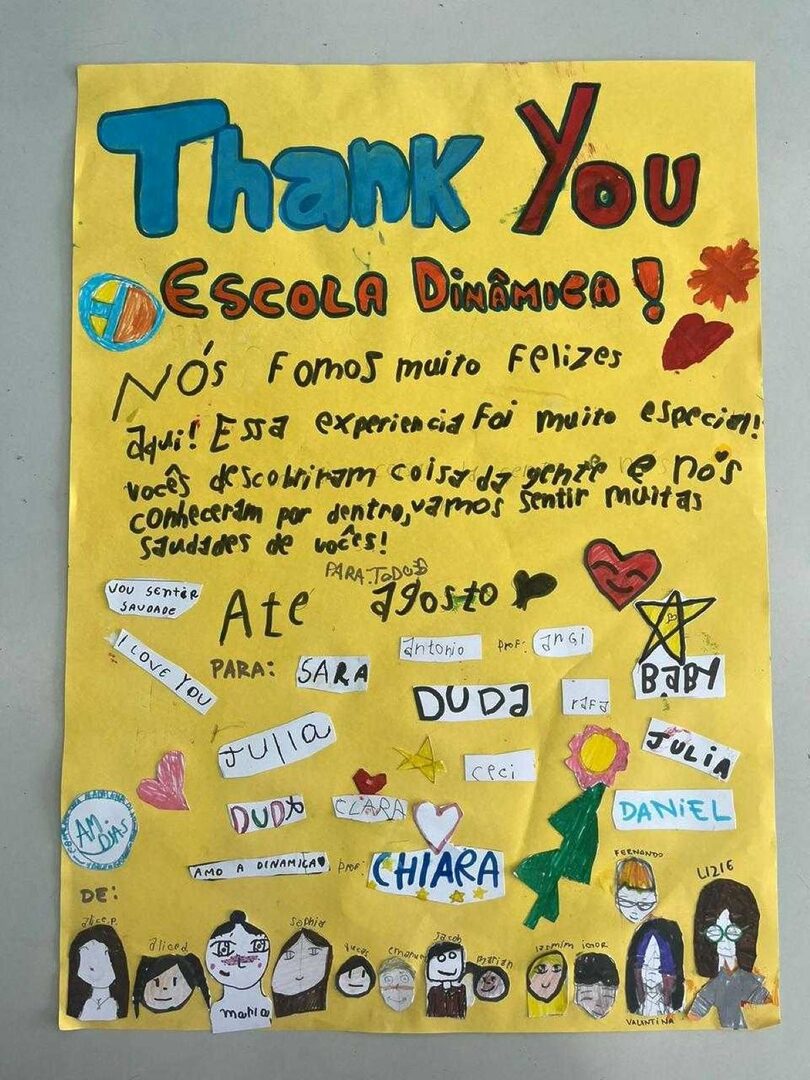 Thank You
ESCOLA DINÂMICA!
NÓS Fomos muito Felizes
aqui! Essa experiencia Foi muito especial!
vocês descobriram coisa da gente e nós
conheceram por dentro, vamos sentir muitas
saudades de vocês!
PARA: TODOS
Ate agosto
VOU SENTIR
SAUDADE
I LOVE YOU
PARA: SARA
antonio
prof: angi
BABY
DUDA
rafa
JULIA
JULIA
ceci
DUDA
CLARA
DANIEL
AM
DIAS
AMO A DINAMICA
prof: CHIARA
FERNANDO
LIZIE
DE:
alice.p.
aliced
Sophia
Lucas
Jacob
marian
iasmim
igor
maria
VALENTINA